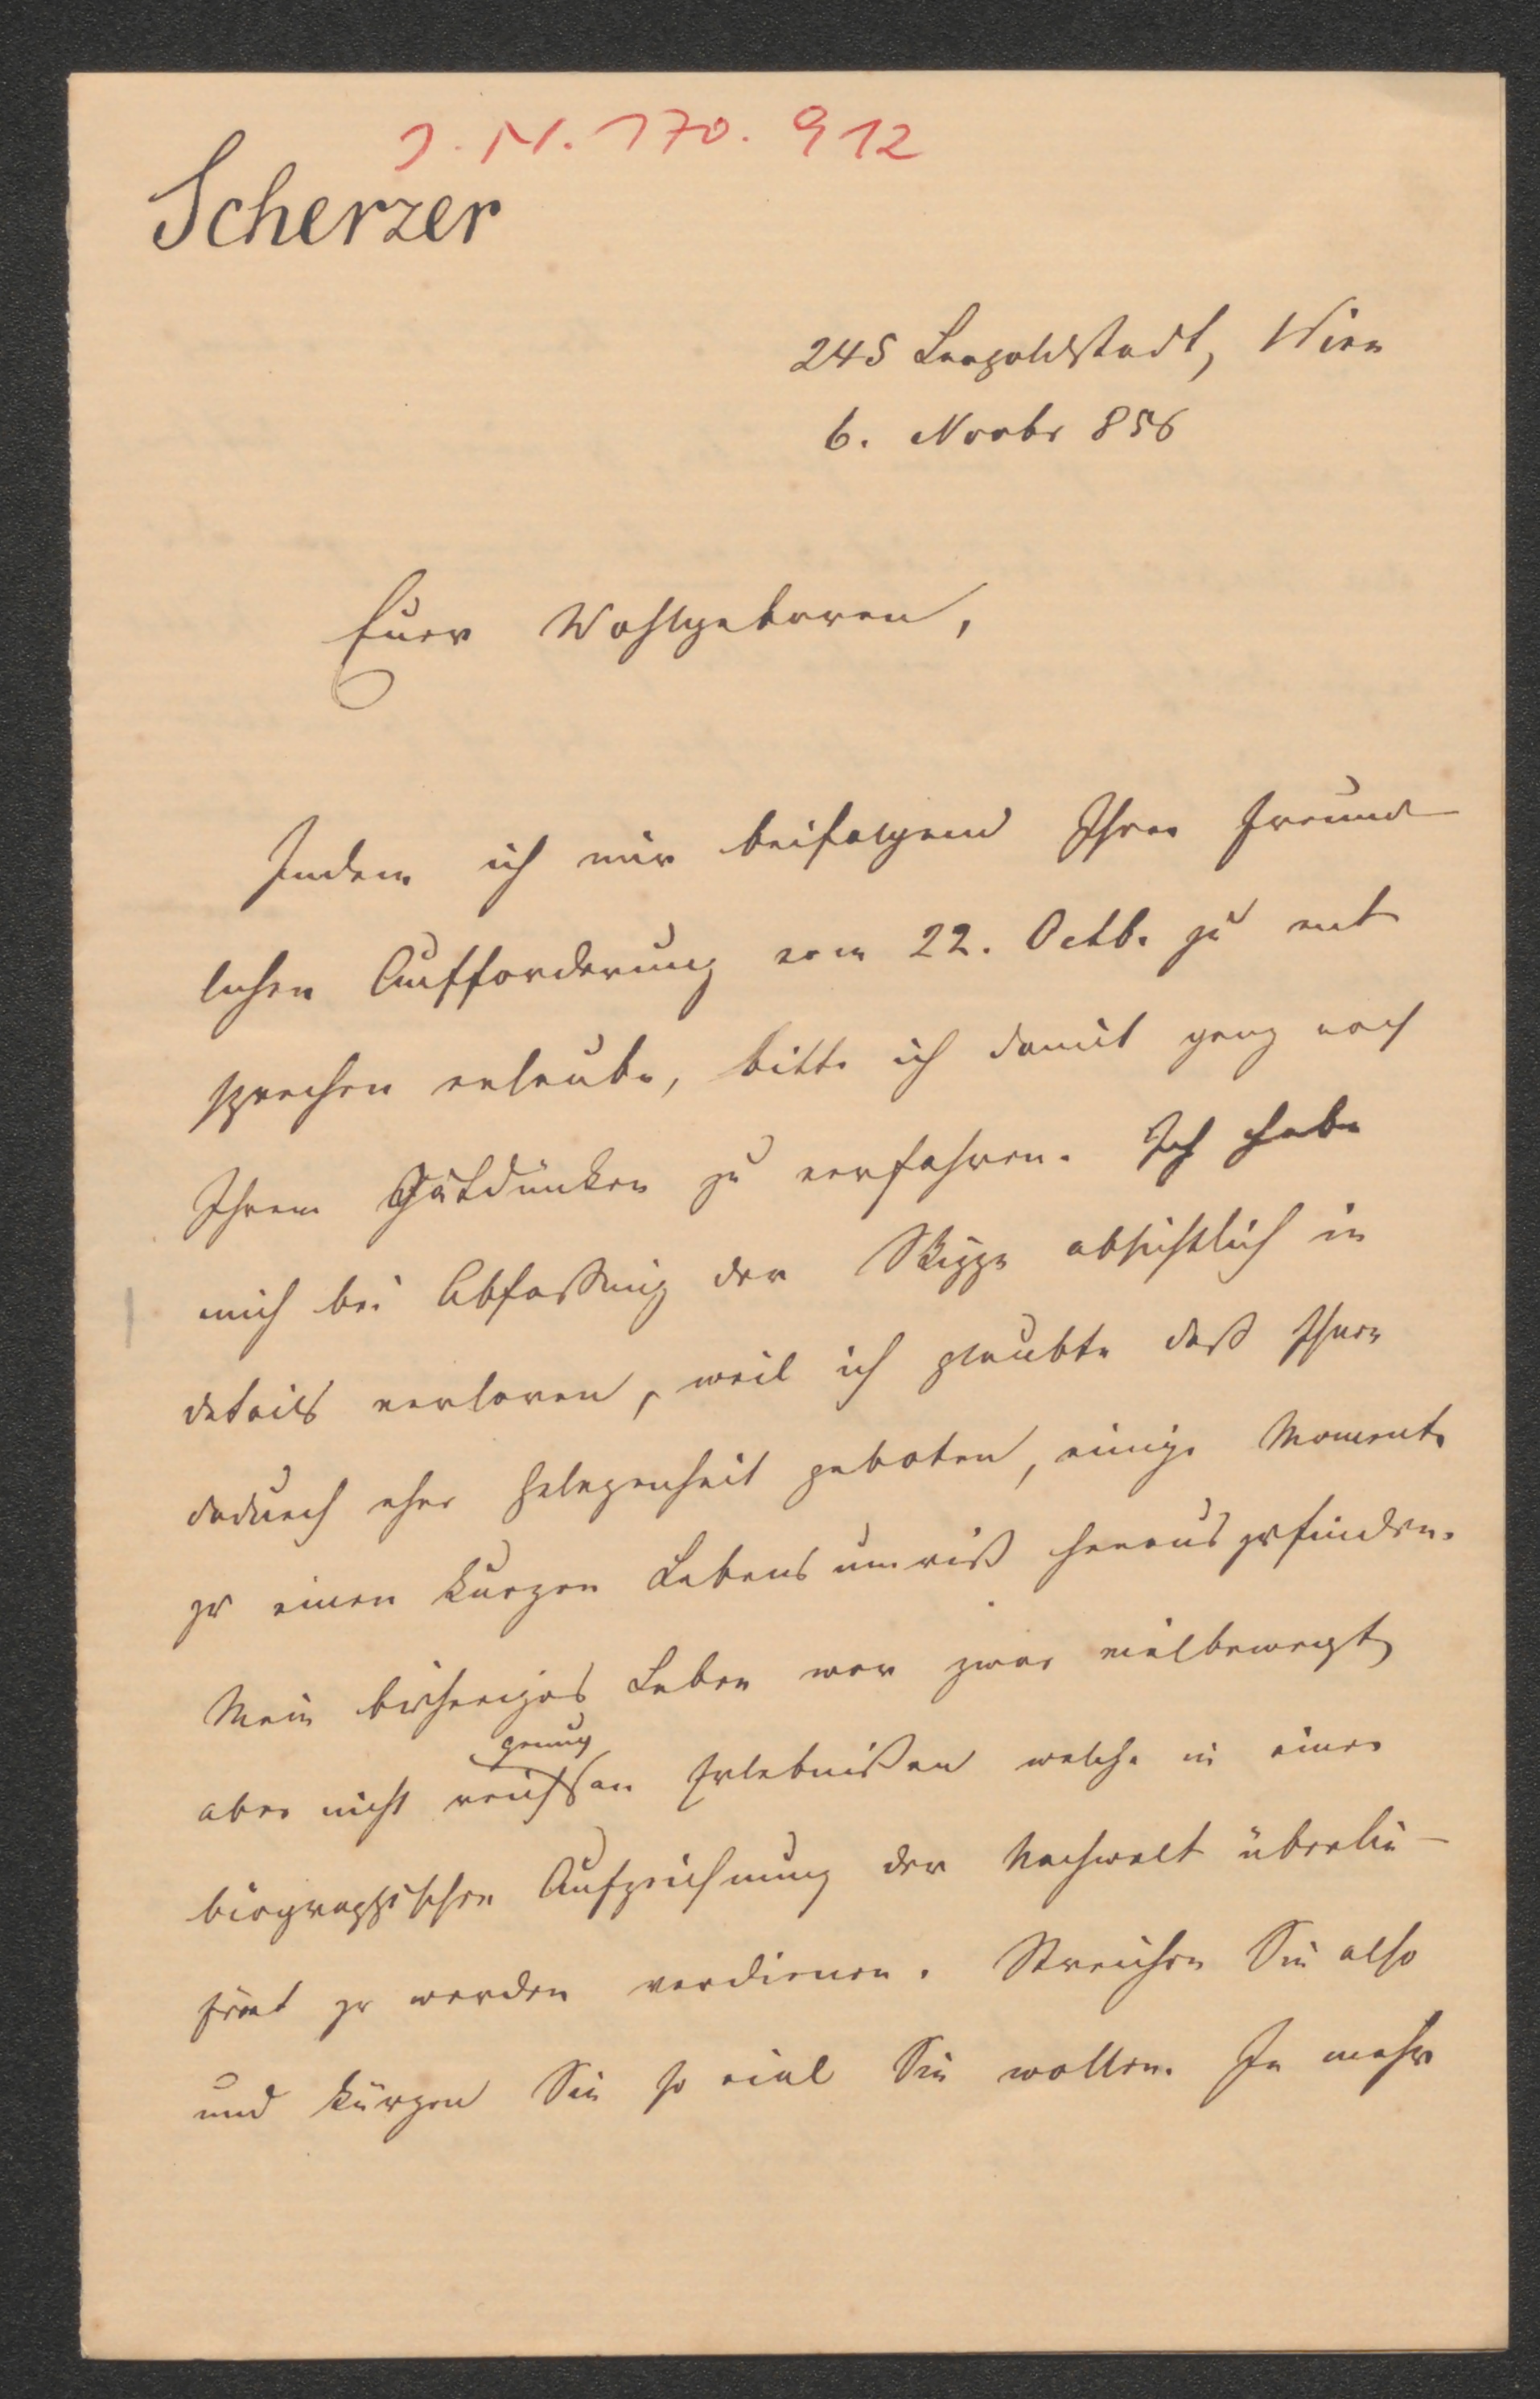 J. N. 170.912
Scherzer
245 Leopoldstadt, Wien
6. Novbr 856
Euer Wohlgeboren,
Indem ich mir beifolgend Ihrer freund
lichen Aufforderung vom 22. Octb. zu ent
sprechen erlaube, bitte ich damit ganz nach
Ihrem Gutdünken zu verfahren. Ich habe
mich bei Abfaßung der Skizze absichtlich in
details verloren, weil ich glaubte daß Ihnen
dadurch eher Gelegenheit geboten, einige Momente
zu einen kurzen Lebensumriß herauszufinden.
Mein bisheriges Leben war zwar vielbewegt,
genug
aber nicht reich an Erlebnißen welche in einer
biographischen Aufzeichnung der Nachwelt überlie-
fert zu werden verdienen. Streichen Sie also
und kürzen Sie so viel Sie wollen. Je mehr